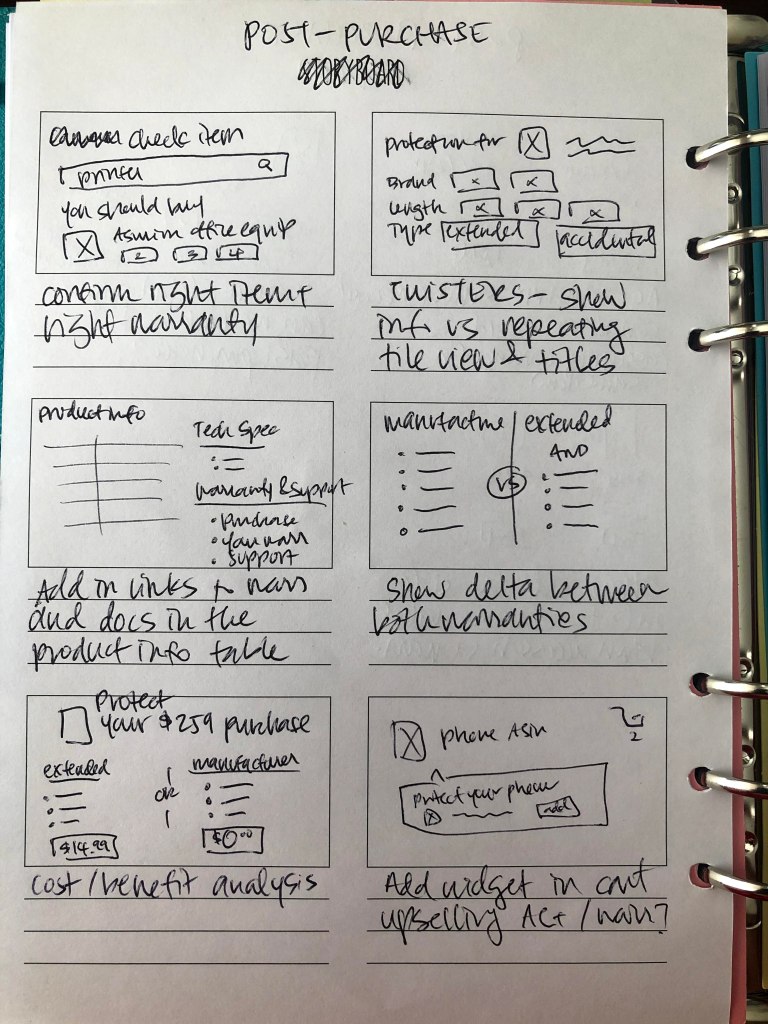 POST-PURCHASE
STORYBOARD
check item
printer
you should buy
X Asurion office equip
2 3 4
confirm right item +
right warranty
protection for X
Brand x x
Length x x x
Type extended accidental
TWISTERS - show
info vs repeating
tile view & titles
product info
Tech Spec
warranty & support
• purchase
• you warr
• support
Add in links to warr
and docs in the
product info table
manufacture
extended
AND
VS
show delta between
both warranties
Protect
your $259 purchase
extended
OR
manufacturer
$14.99
$0.00
cost/benefit analysis
X phone Asin
2
protect your phone
X add
Add widget in cart
upselling AC+ / warr?